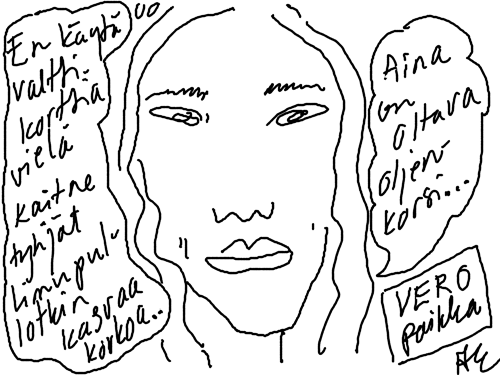 En käytä
valtti-
korttia
vielä
kait ne
tyhjät
limupul-
lotkin
kasvaa
korkoa..
Aina
on
oltava
oljen-
korsi...
VERO
paikka
AK